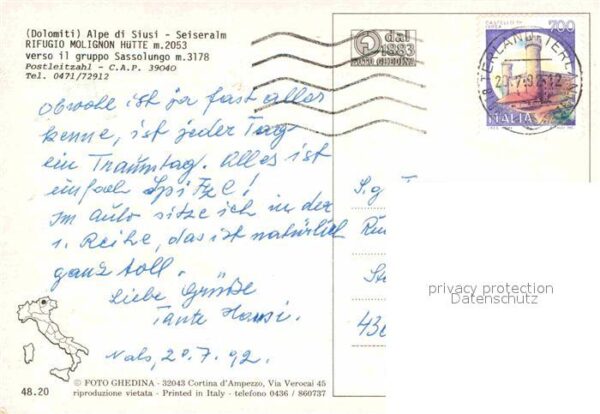 (Dolomiti) Alpe di Siusi - Seiseralm
RIFUGIO MOLIGNON HÜTTE m.2053
verso il gruppo Sassolungo m.3178
Postleitzahl - C.A.P. 39040
Tel. 0471/72912
dal
1883
FOTO GHEDINA
CASTELLO DI
700
TERLANO TERLAN
ITALIA
Obwohl ist ja fast alles
kenne, ist jeder Tag
ein Traumtag. Alles ist
einfach Spitze!
Im Auto sitze ich in der
1. Reihe, das ist natürlich
ganz toll.
Liebe Grüße
Tante Hansi.
Nals, 20.7.92.
S.g.
St
43
privacy protection
Datenschutz
© FOTO GHEDINA - 32043 Cortina d'Ampezzo, Via Verocai 45
48.20 riproduzione vietata - Printed in Italy - telefono 0436 / 860737